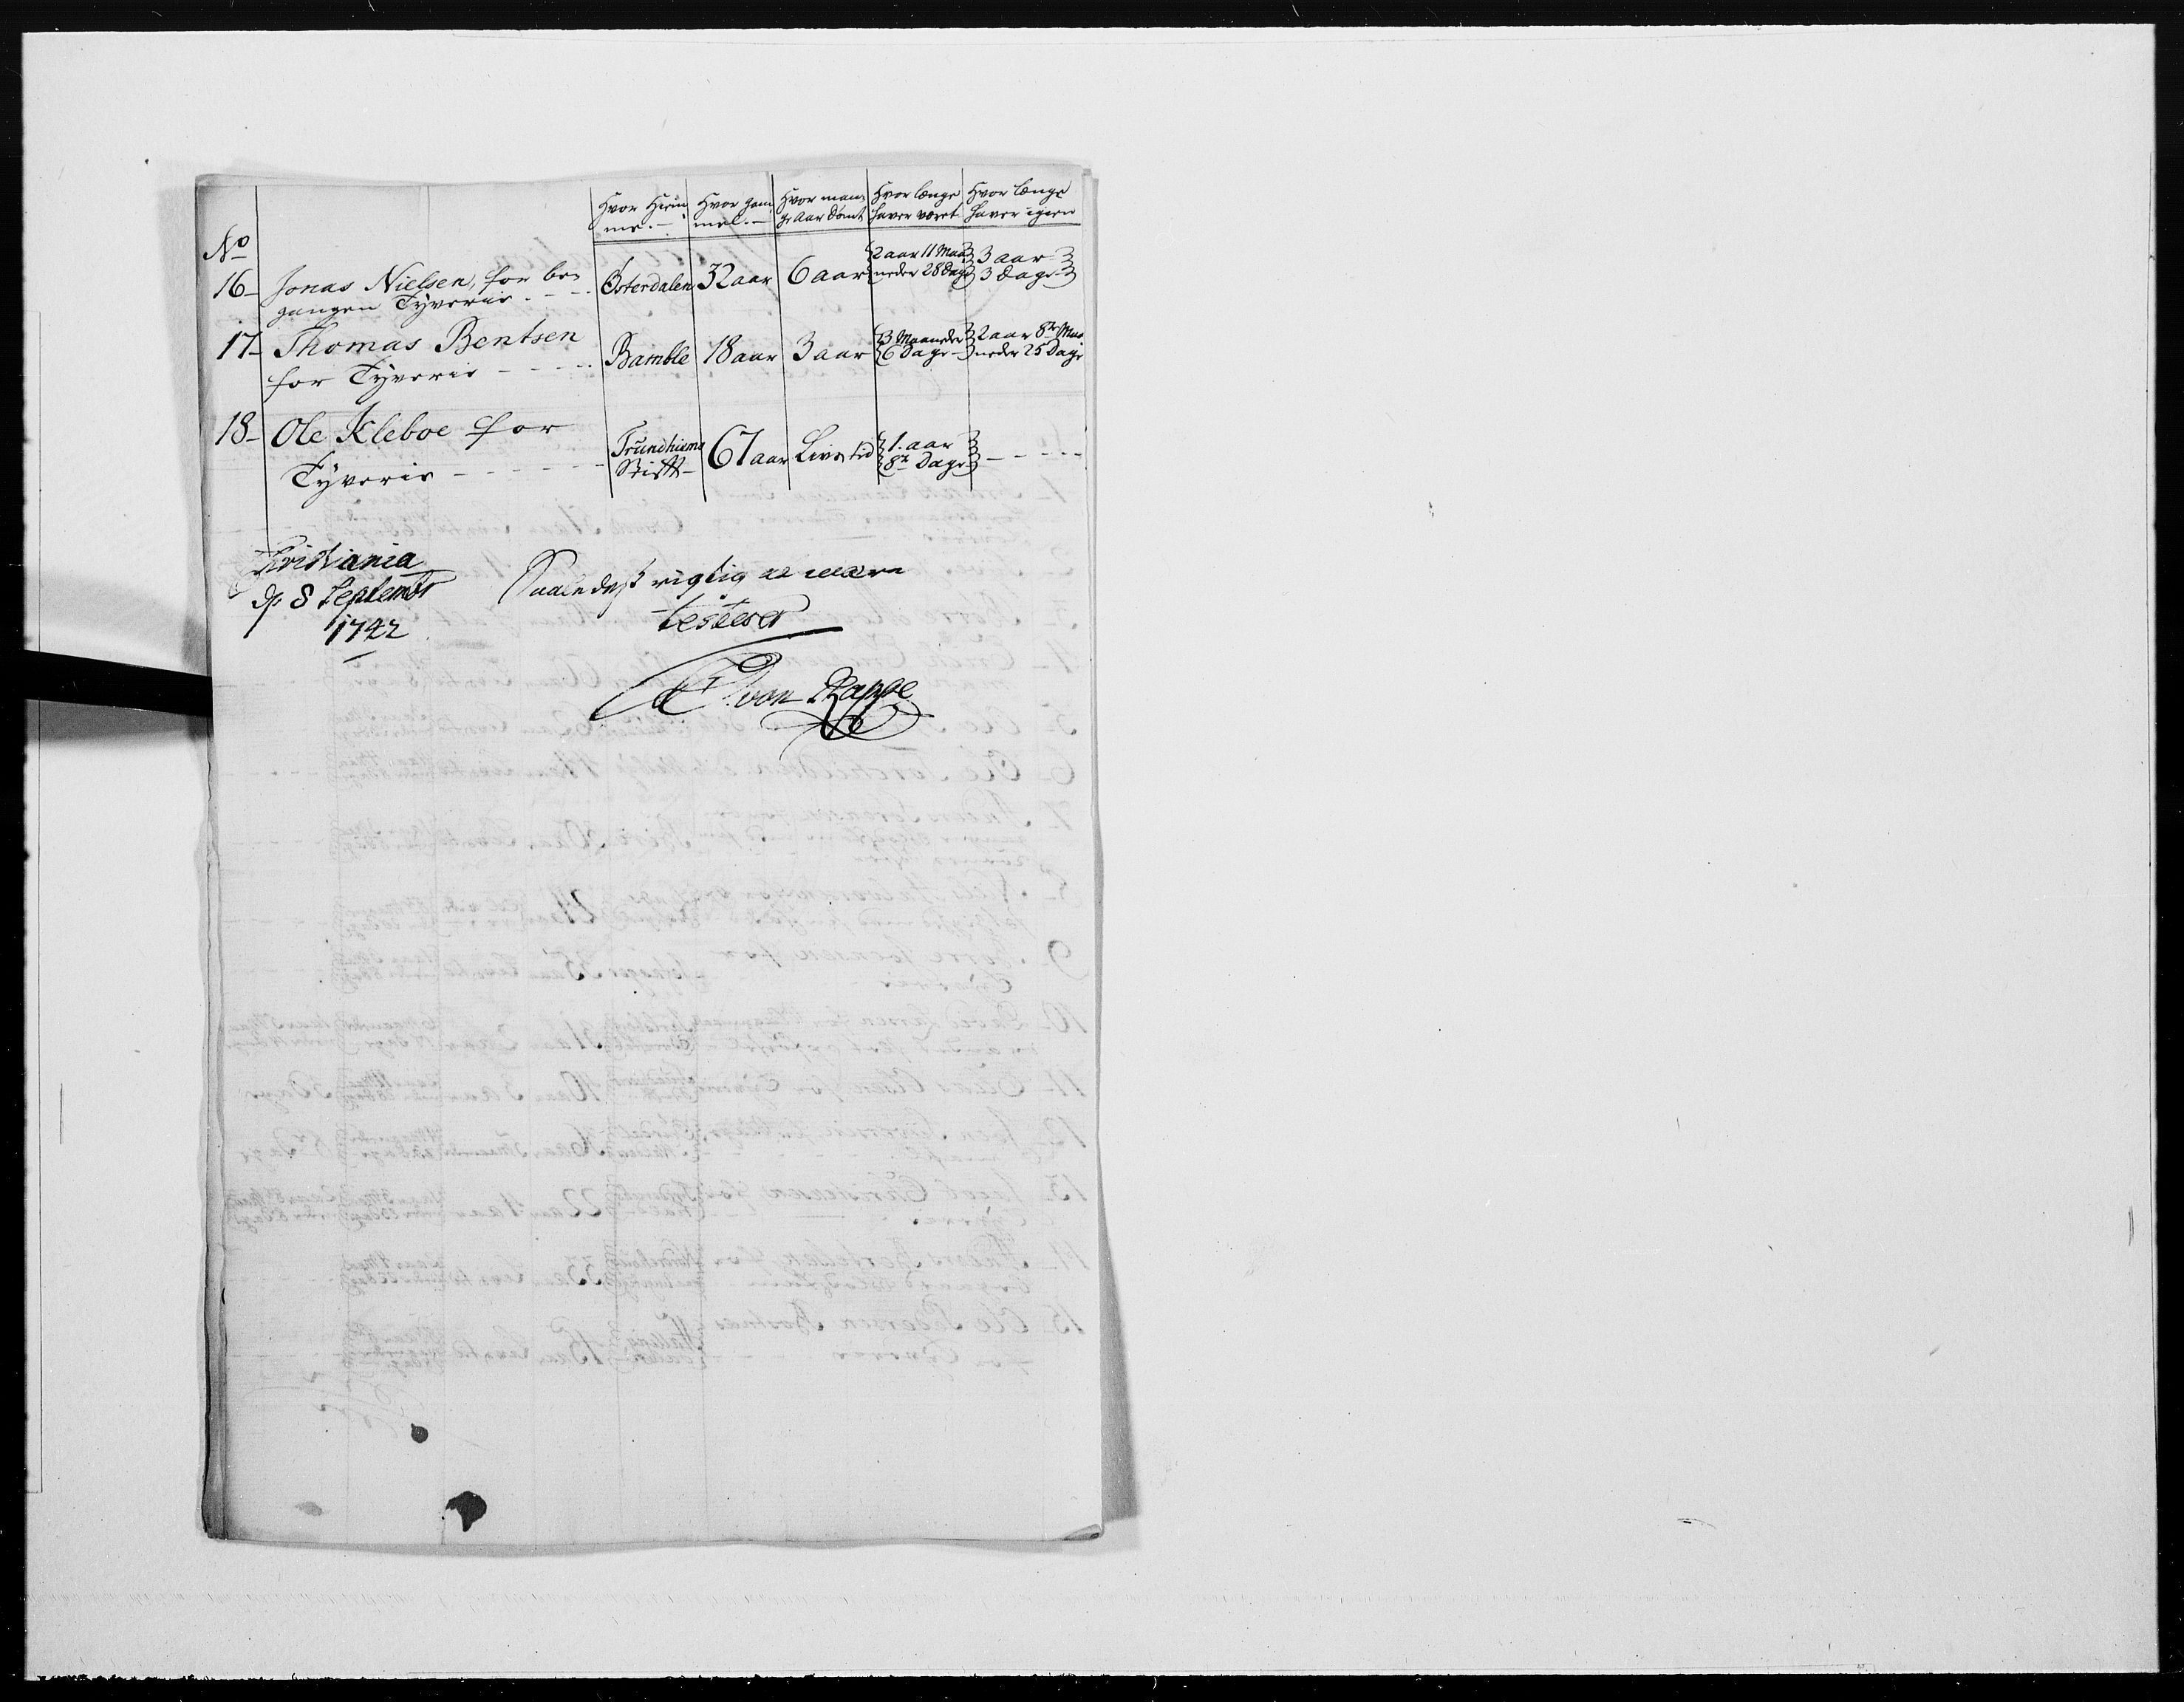 No
Hvor Hiem¸ me.— | Hvor gam¸ mel.— | Hvor man¸ ge Aar dömt | Hvor længe haver været | Hvor længe haver igien
16– Jonas Nielsen, for be¸ gangen Tÿverie - - - | Österdalen | 32 aar | 6 aar | 2 aar 11 Maa neder 28 Dage | 3 aar 3 Dage
17– Thomas Bentsen for Tÿverie - - - - | Bamble | 18 aar | 3 aar | 3 Maaneder 6 Dage– | 2 aar 8te Maa neder 25 Dage
18– Ole Kleboe for Tÿverie - - - - - - | Trundhiems Stift– | 67 aar | Livs tid | 1. aar 8te Dage | - - - - -
Christiania
d. 8 Septembr
1742
Saaledeß rigtig at være
testerer
von Rappe